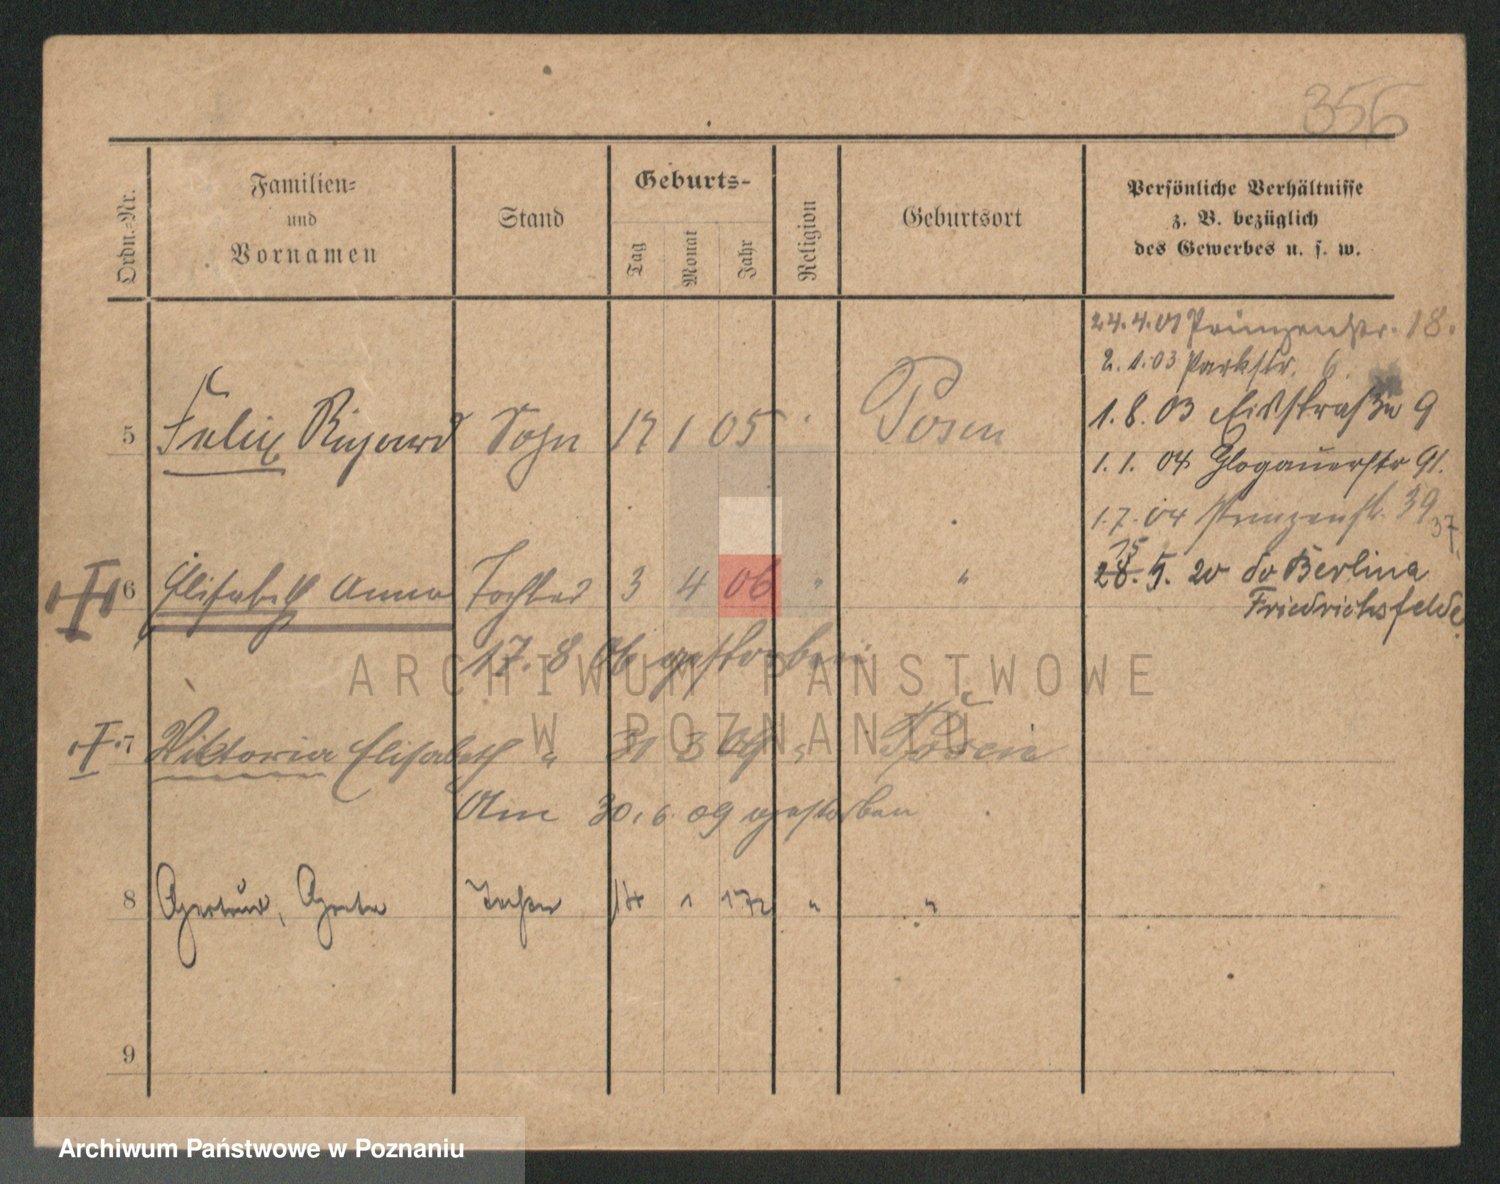 356
Ordn.-Nr.
Familien-
und
Vornamen
Stand
Geburts-
Tag
Monat
Jahr
Religion
Geburtsort
Persönliche Verhältnisse
z. B. bezüglich
des Gewerbes u. s. w.
24.4.01 Prinzenstr. 18.
2.1.03 Parkstr. 6.
1.8.03 9
1.1. 04 Glogauerstr 91.
1.7.04 Prinzenstr. 39
37.
5 Felix Richard Sohn 17 1 05 Posen
15
28. 5. 20 Berlin
Friedrichsfelde
6 Elisabeth Anna Tochter 3 4 06 " "
17. 8 06 gestorben
7 Viktoria Elisabeth " 31 3 Posen
Am 30.6.09 gestorben
8 Gertrud, Tochter 1 " "
9
ARCHIWUM PAŃSTWOWE
W POZNANIU
Archiwum Państwowe w Poznaniu